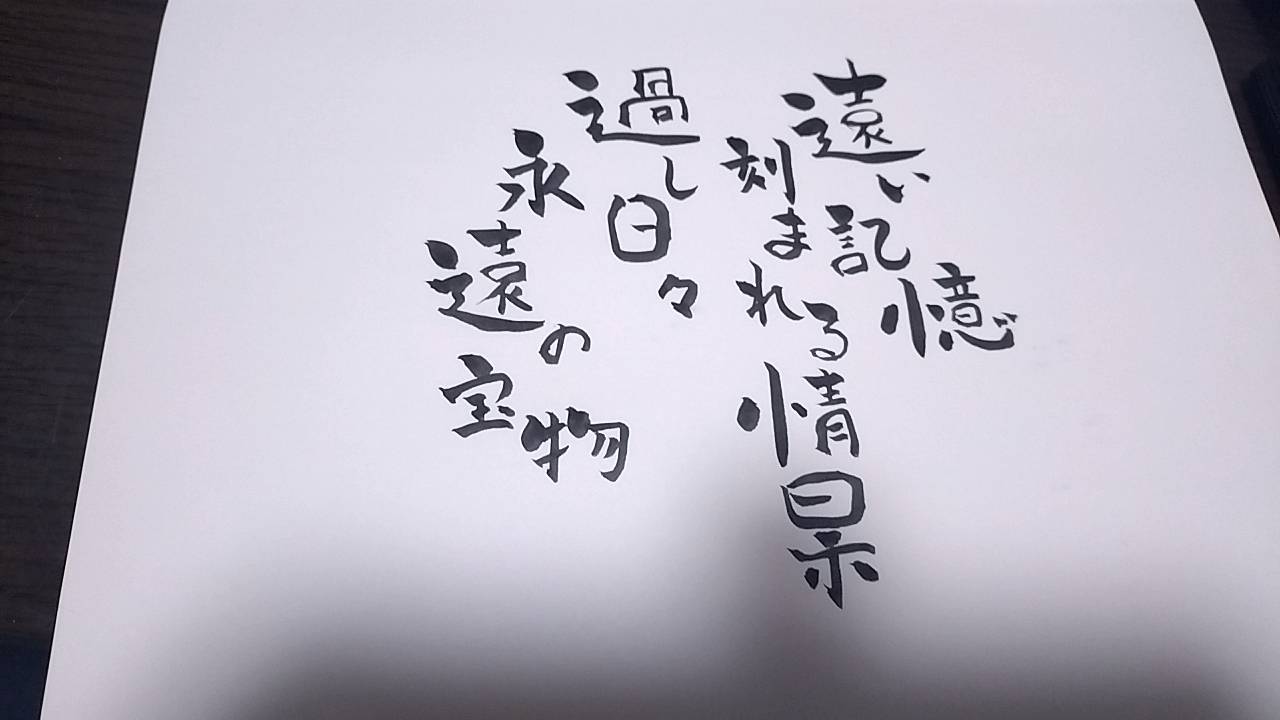 遠い記憶
刻まれる情景
過し日々
永遠の宝物